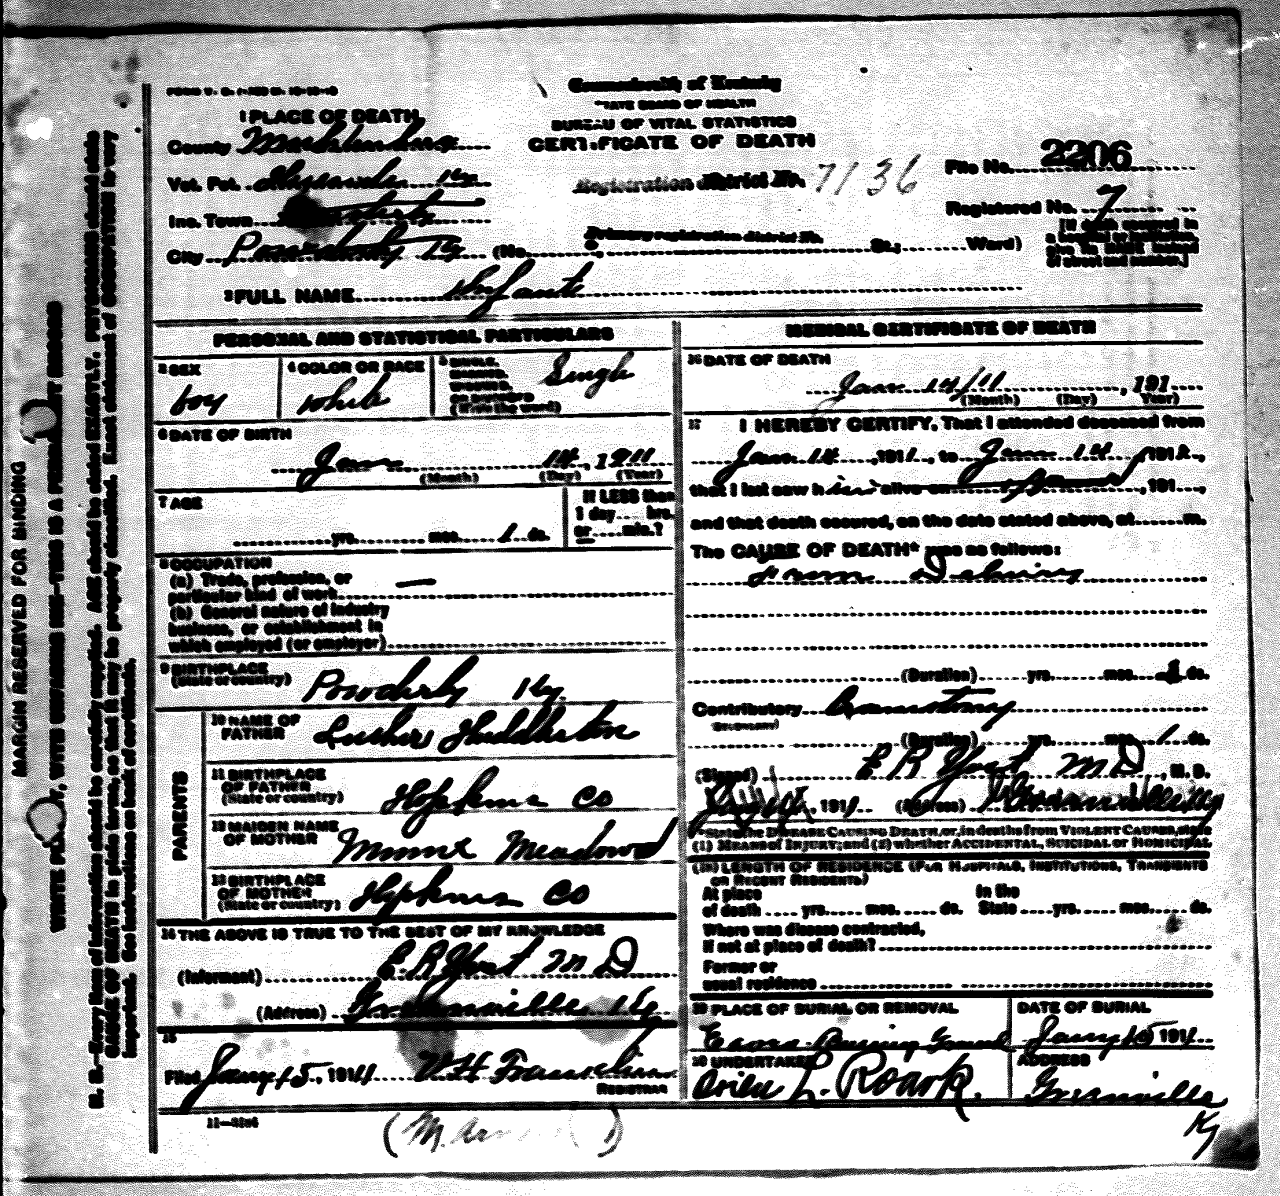 Commonwealth of Kentucky
STATE BOARD OF HEALTH
BUREAU OF VITAL STATISTICS
CERTIFICATE OF DEATH
1 PLACE OF DEATH
County Muhlenberg
Vot. Pct.
Inc. Town
City Powderly Ky (No. St.; Ward)
Registration District No. 7136
Primary registration district No.
File No. 2206
Registered No. 7
2 FULL NAME Infant
PERSONAL AND STATISTICAL PARTICULARS
3 SEX
boy
4 COLOR OR RACE
White
5 SINGLE,
MARRIED,
WIDOWED,
OR DIVORCED
(Write the word)
Single
6 DATE OF BIRTH
Jan 14, 1911
(Month) (Day) (Year)
7 AGE
yrs. mos. 1 ds.
If LESS than
1 day hrs.
or min.?
8 OCCUPATION
(a) Trade, profession, or
particular kind of work —
(b) General nature of industry
business, or establishment in
which employed (or employer)
9 BIRTHPLACE
(State or country)
Powderly Ky
PARENTS
10 NAME OF
FATHER
Luther Huddleston
11 BIRTHPLACE
OF FATHER
(State or country)
Hopkins Co
12 MAIDEN NAME
OF MOTHER
Minnie Meadows
13 BIRTHPLACE
OF MOTHER
(State or country)
Hopkins Co
14 THE ABOVE IS TRUE TO THE BEST OF MY KNOWLEDGE
(Informant) E. R. Yost M D
(Address) Greenville Ky
15
Filed Jany 15, 1911 Franklin
REGISTRAR
11-3184
MEDICAL CERTIFICATE OF DEATH
16 DATE OF DEATH
Jan 14/11, 191
(Month) (Day) (Year)
17 I HEREBY CERTIFY, That I attended deceased from
Jan 14, 1911, to Jan 14, 191
that I last saw him alive on , 191 ,
and that death occured, on the date stated above, at m.
The CAUSE OF DEATH* was as follows:
(Duration) yrs. mos. 1 ds.
Contributory
(SECONDARY)
(Duration) yrs. mos. 1 ds.
(Signed) E R Yost M D, M. D.
, 1911 (Address)
*State the DISEASE CAUSING DEATH, or, in deaths from VIOLENT CAUSES, state
(1) MEANS OF INJURY; and (2) whether ACCIDENTAL, SUICIDAL or HOMICIDAL
(18) LENGTH OF RESIDENCE (FOR HOSPITALS, INSTITUTIONS, TRANSIENTS
OR RECENT RESIDENTS)
At place In the
of death yrs. mos. ds. State yrs. mos. ds.
Where was disease contracted,
if not at place of death?
Former or
usual residence
19 PLACE OF BURIAL OR REMOVAL
DATE OF BURIAL
Jany 15 1911
20 UNDERTAKER
L. Roark
ADDRESS
Greenville
Ky
MARGIN RESERVED FOR BINDING
WRITE PLAINLY, WITH UNFADING INK—THIS IS A PERMANENT RECORD
N. B.—Every item of information should be carefully supplied. AGE should be stated EXACTLY. PHYSICIANS should state
CAUSE OF DEATH in plain terms, so that it may be properly classified. Exact statement of OCCUPATION is very
important. See instructions on back of certificate.